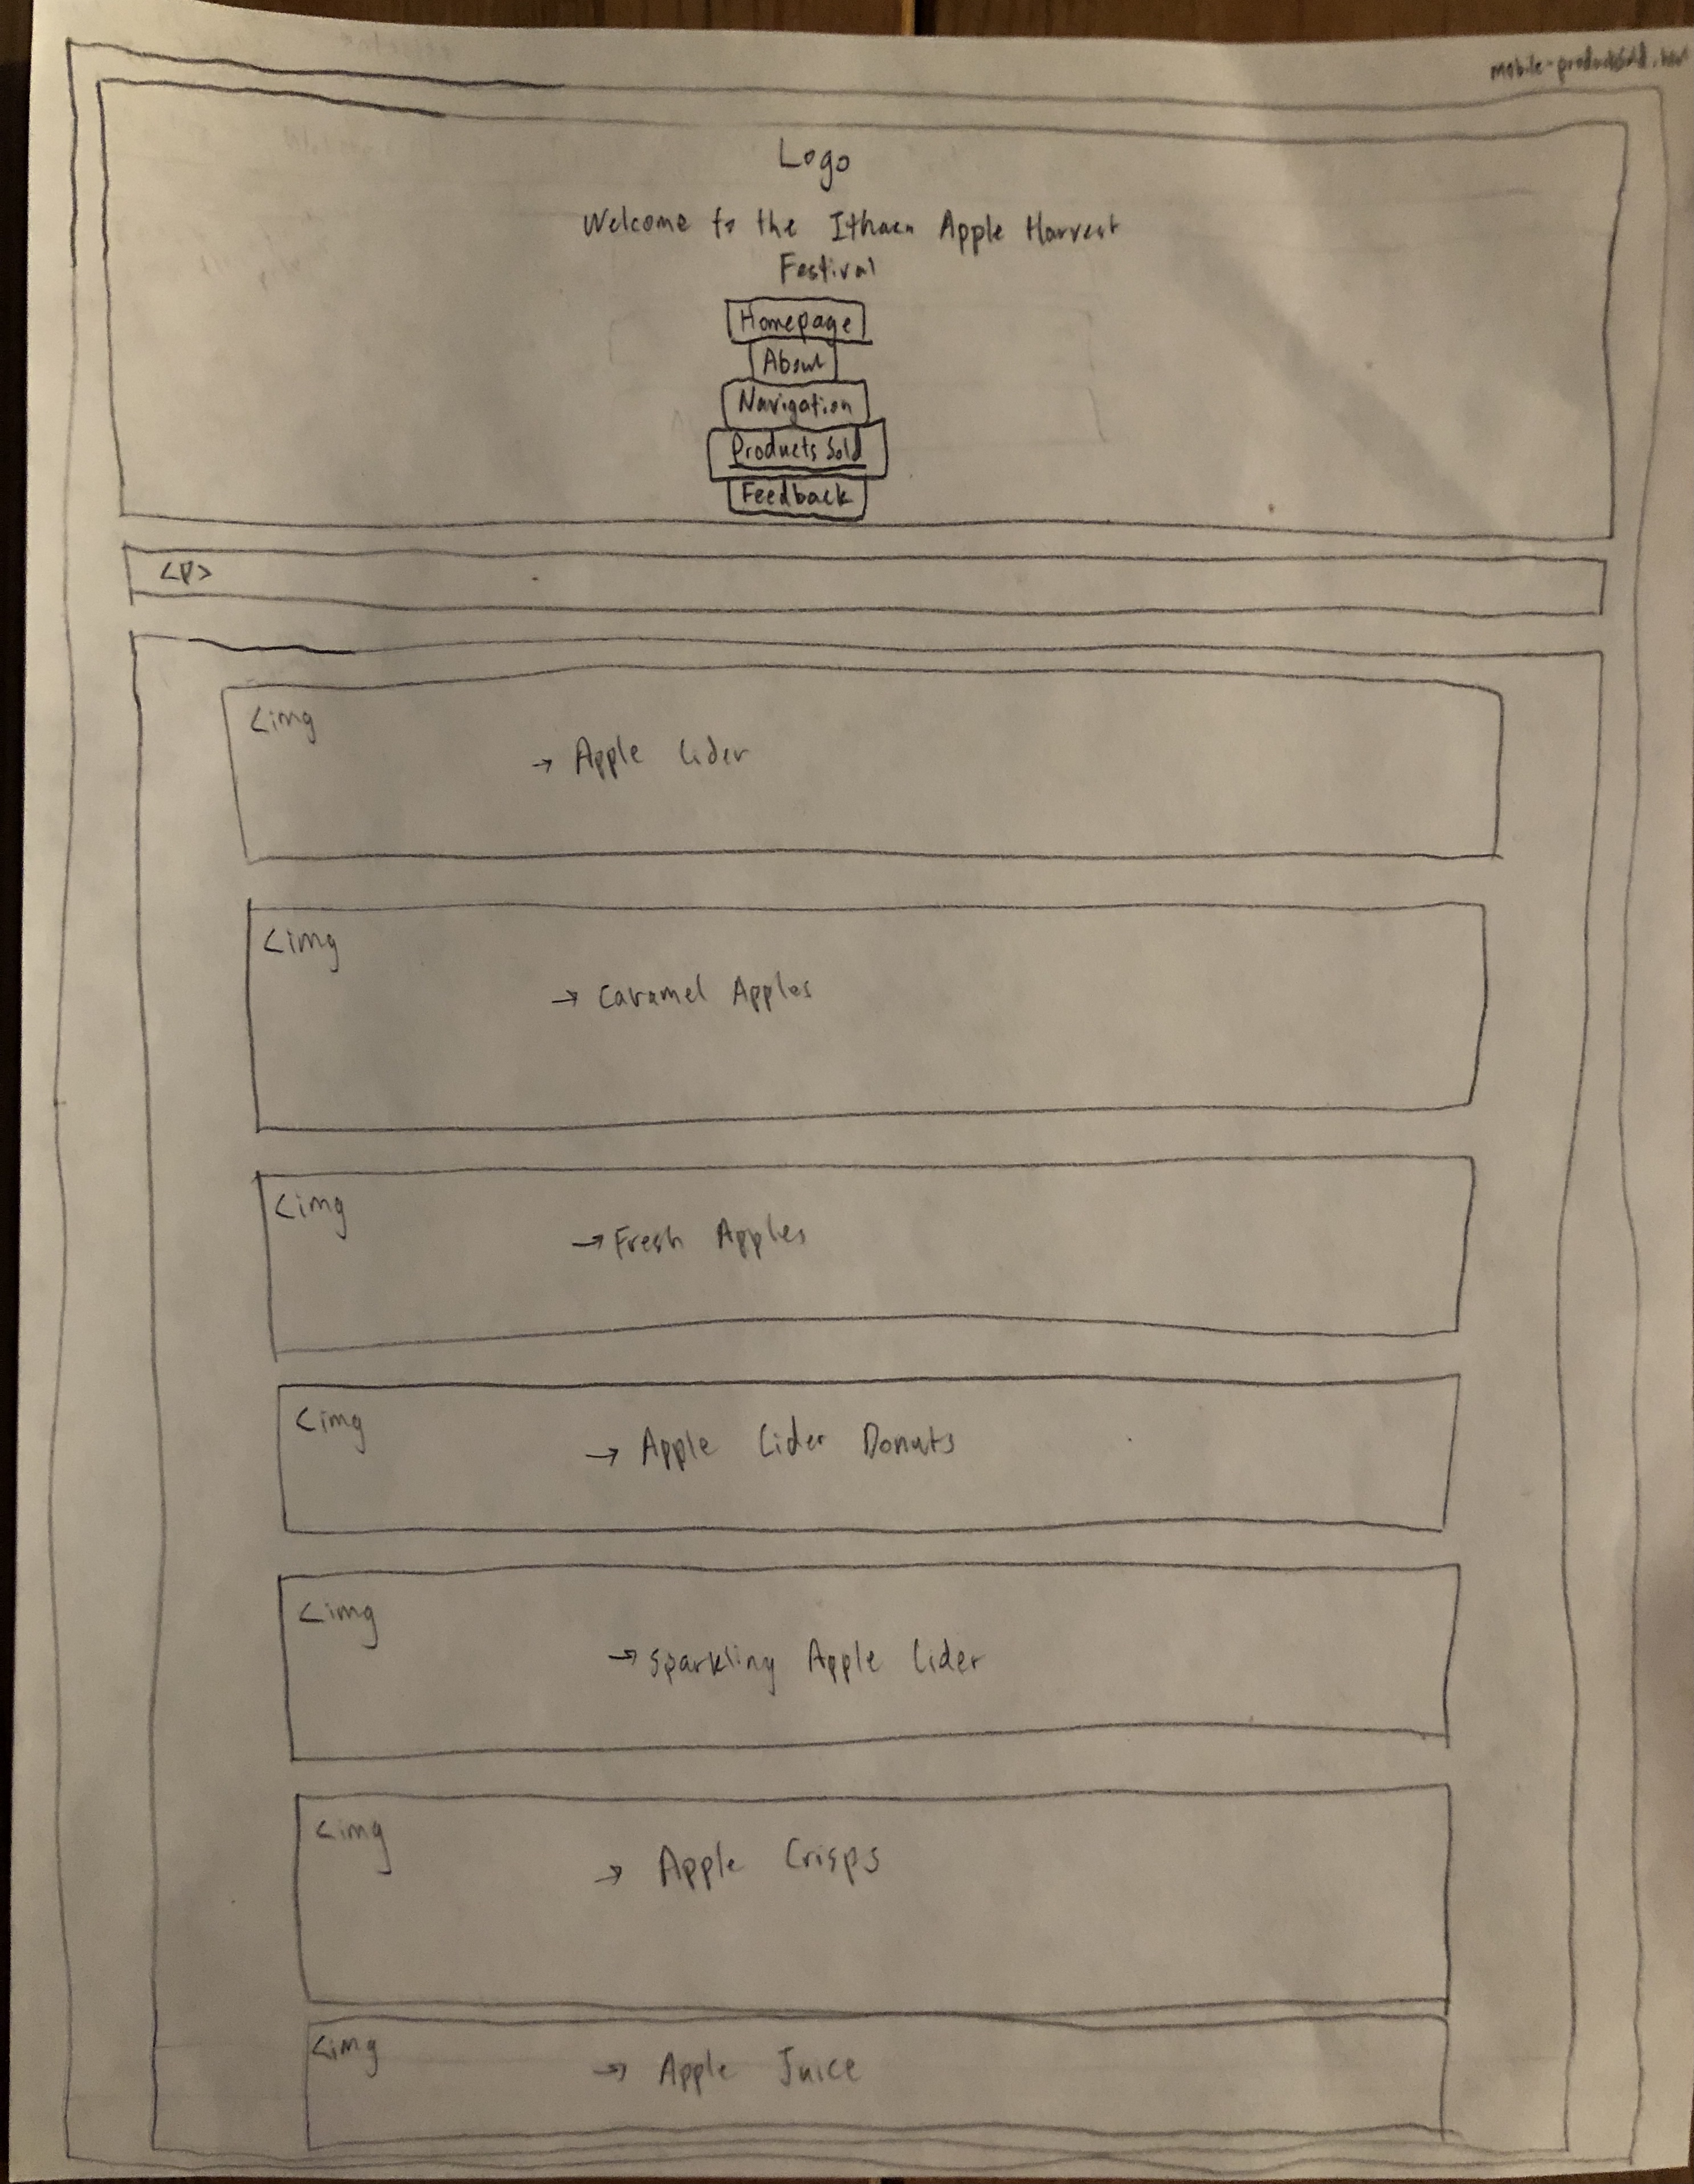 Logo
Welcome to the Ithaca Apple Harvest
Festival
Homepage
About
Navigation
Products Sold
Feedback
<p>
<img
→ Apple Cider
<img
→ Caramel Apples
<img
→ Fresh Apples
<img
→ Apple Cider Donuts
<img
→ Sparkling Apple Cider
<img
→ Apple Crisps
<img
→ Apple Juice